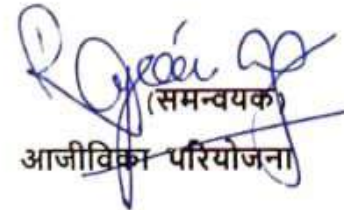 (समन्वयक)
आजीविका परियोजना